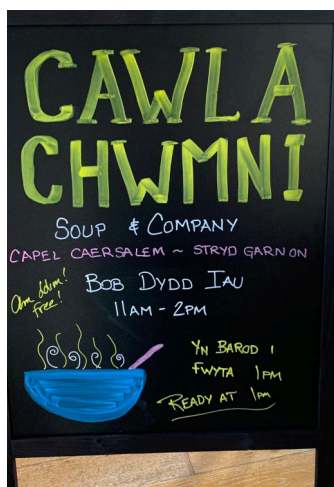 CAWL A
CHWMNI
SOUP & COMPANY
CAPEL CAERSALEM ~ STRYD GARNON
Am ddim!
Free!
BOB DYDD IAU
11AM - 2PM
YN BAROD I
FWYTA 1PM
READY AT 1PM